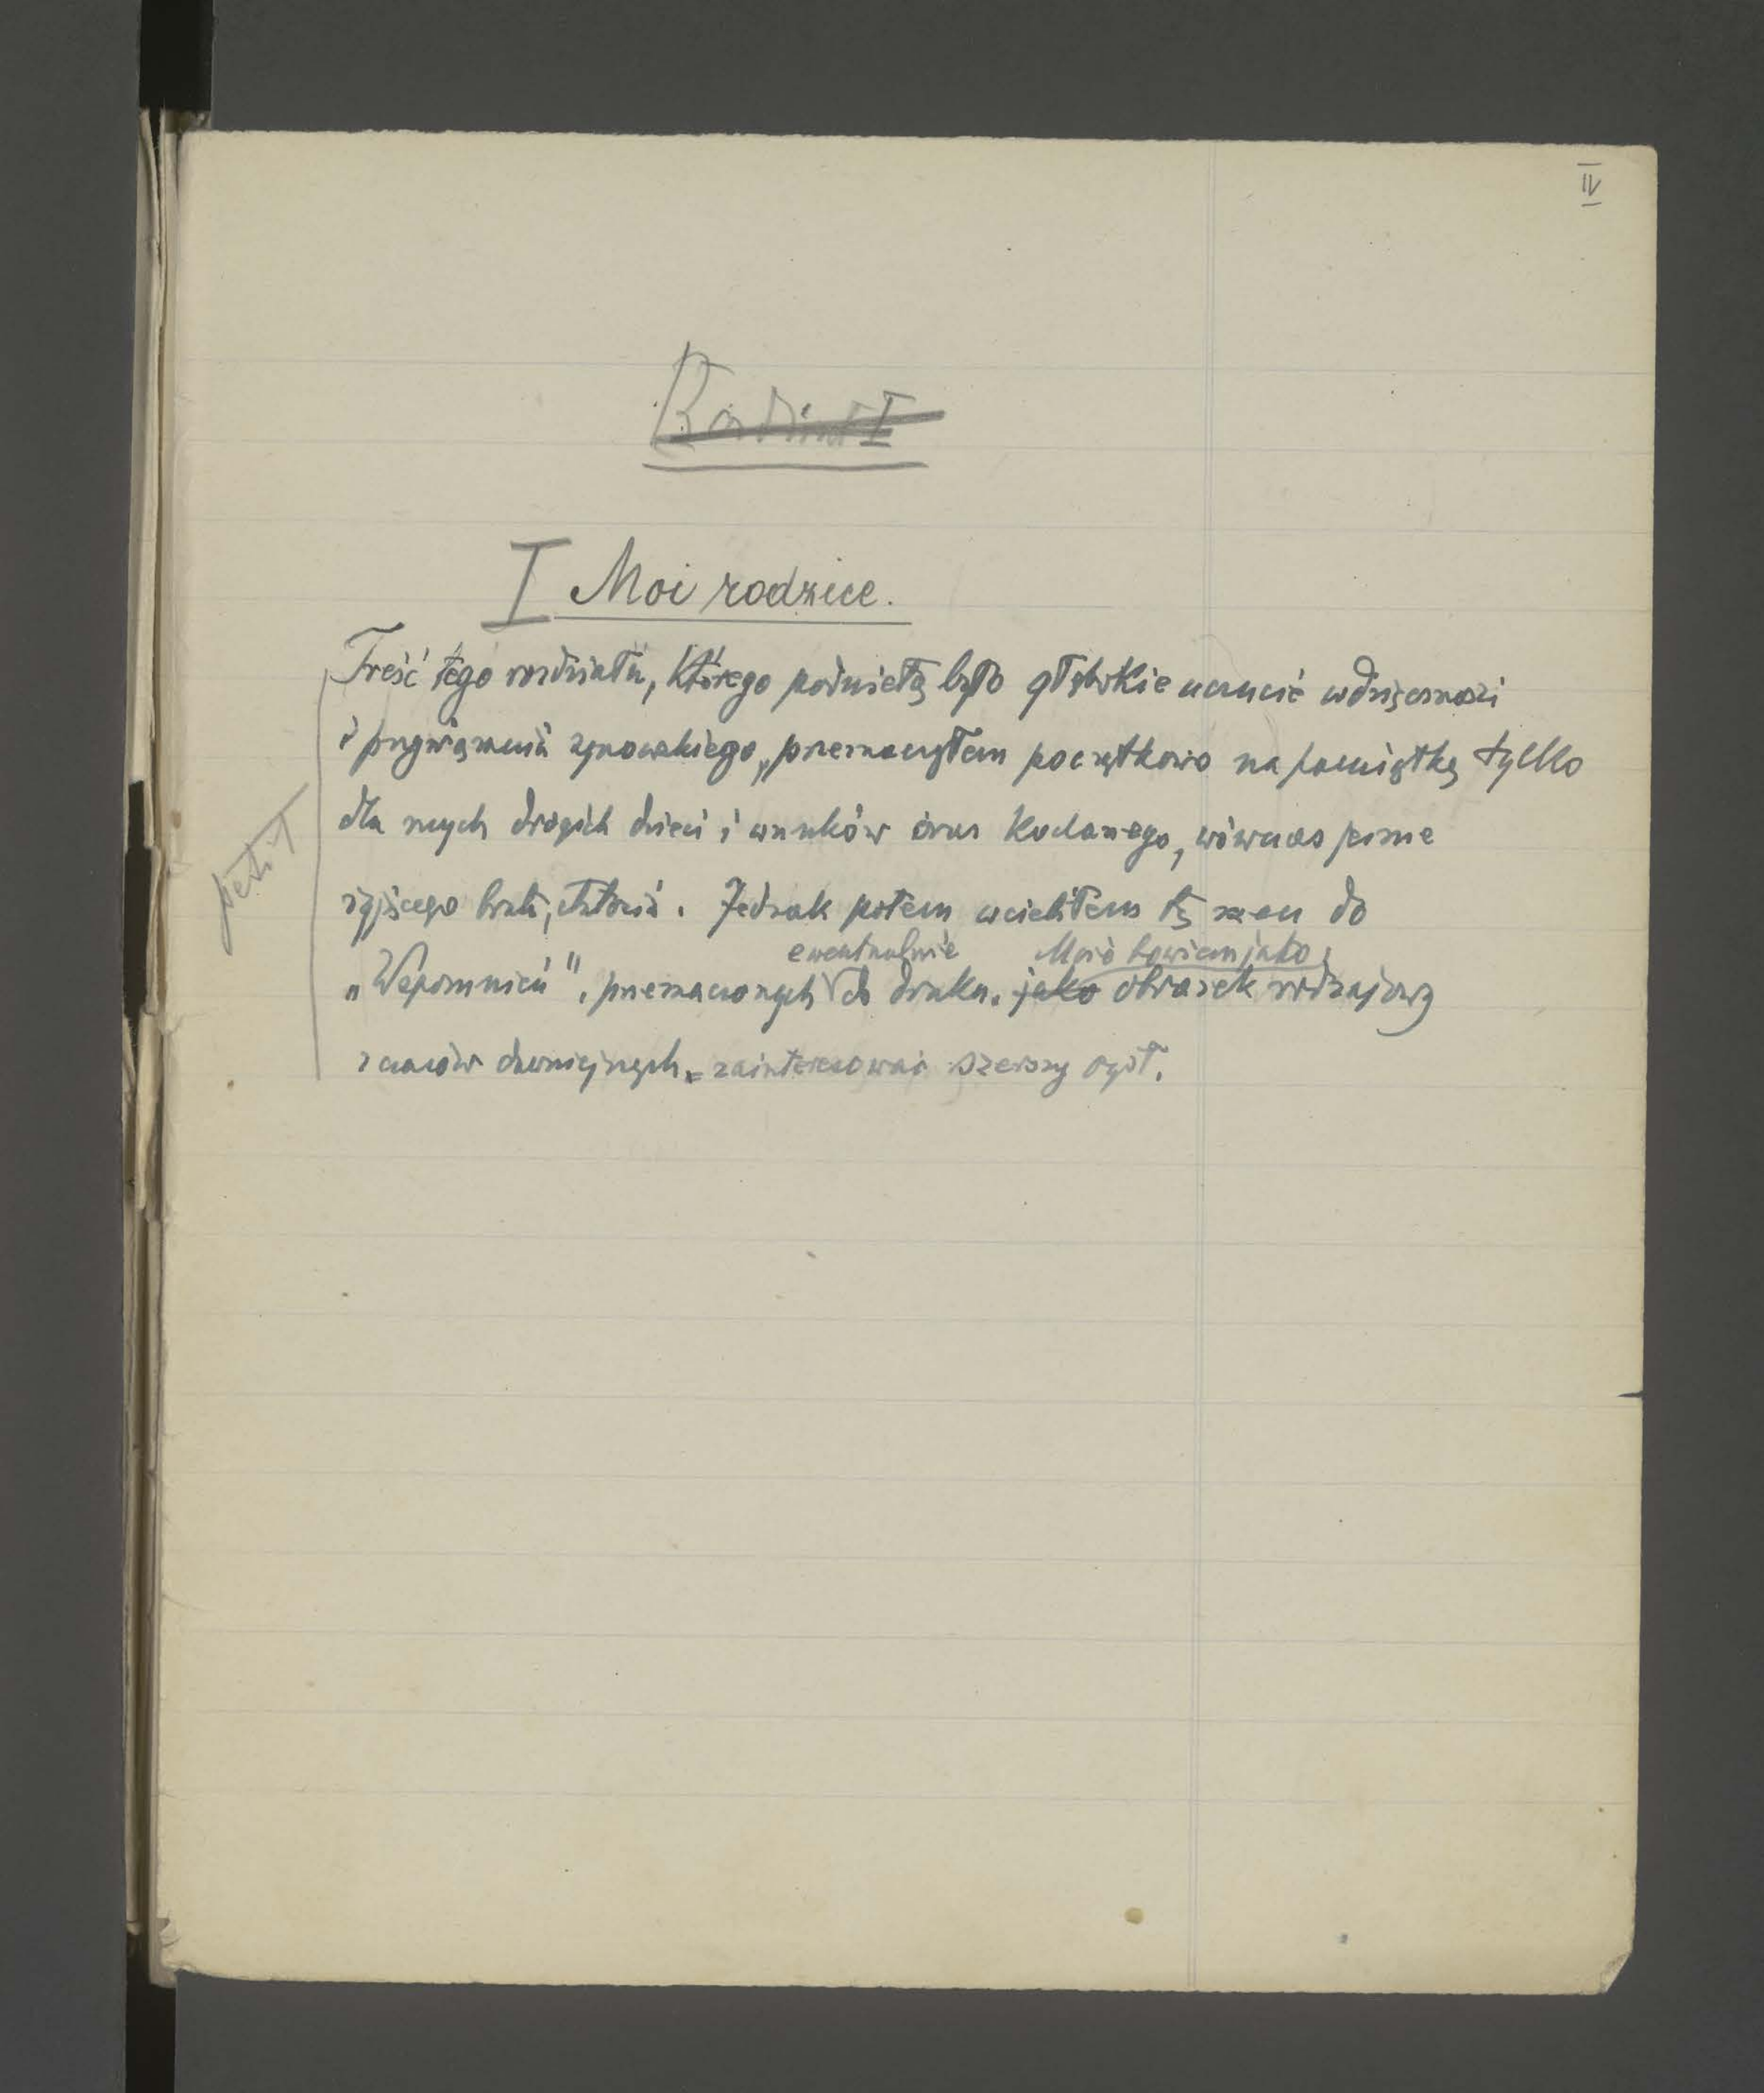 IV
Rozdział I
I Moi rodzice.
Treść tego rozdziału, którego podnietą było głębokie uczucie wdzięczności
i przywiązania synowskiego, przeznaczyłem początkowo na pamiątkę tylko
dla mych drogich dzieci i wnuków oraz kochanego, wówczas jeszcze
żyjącego brata, . Jednak potem wcieliłem tę rzecz do
ewentualnie Może bowiem jako
„Wspomnień”, przeznaczonych do druku. jako obrazek rodzajowy
z czasów dawniejszych zainteresować szerszy ogół.
petit